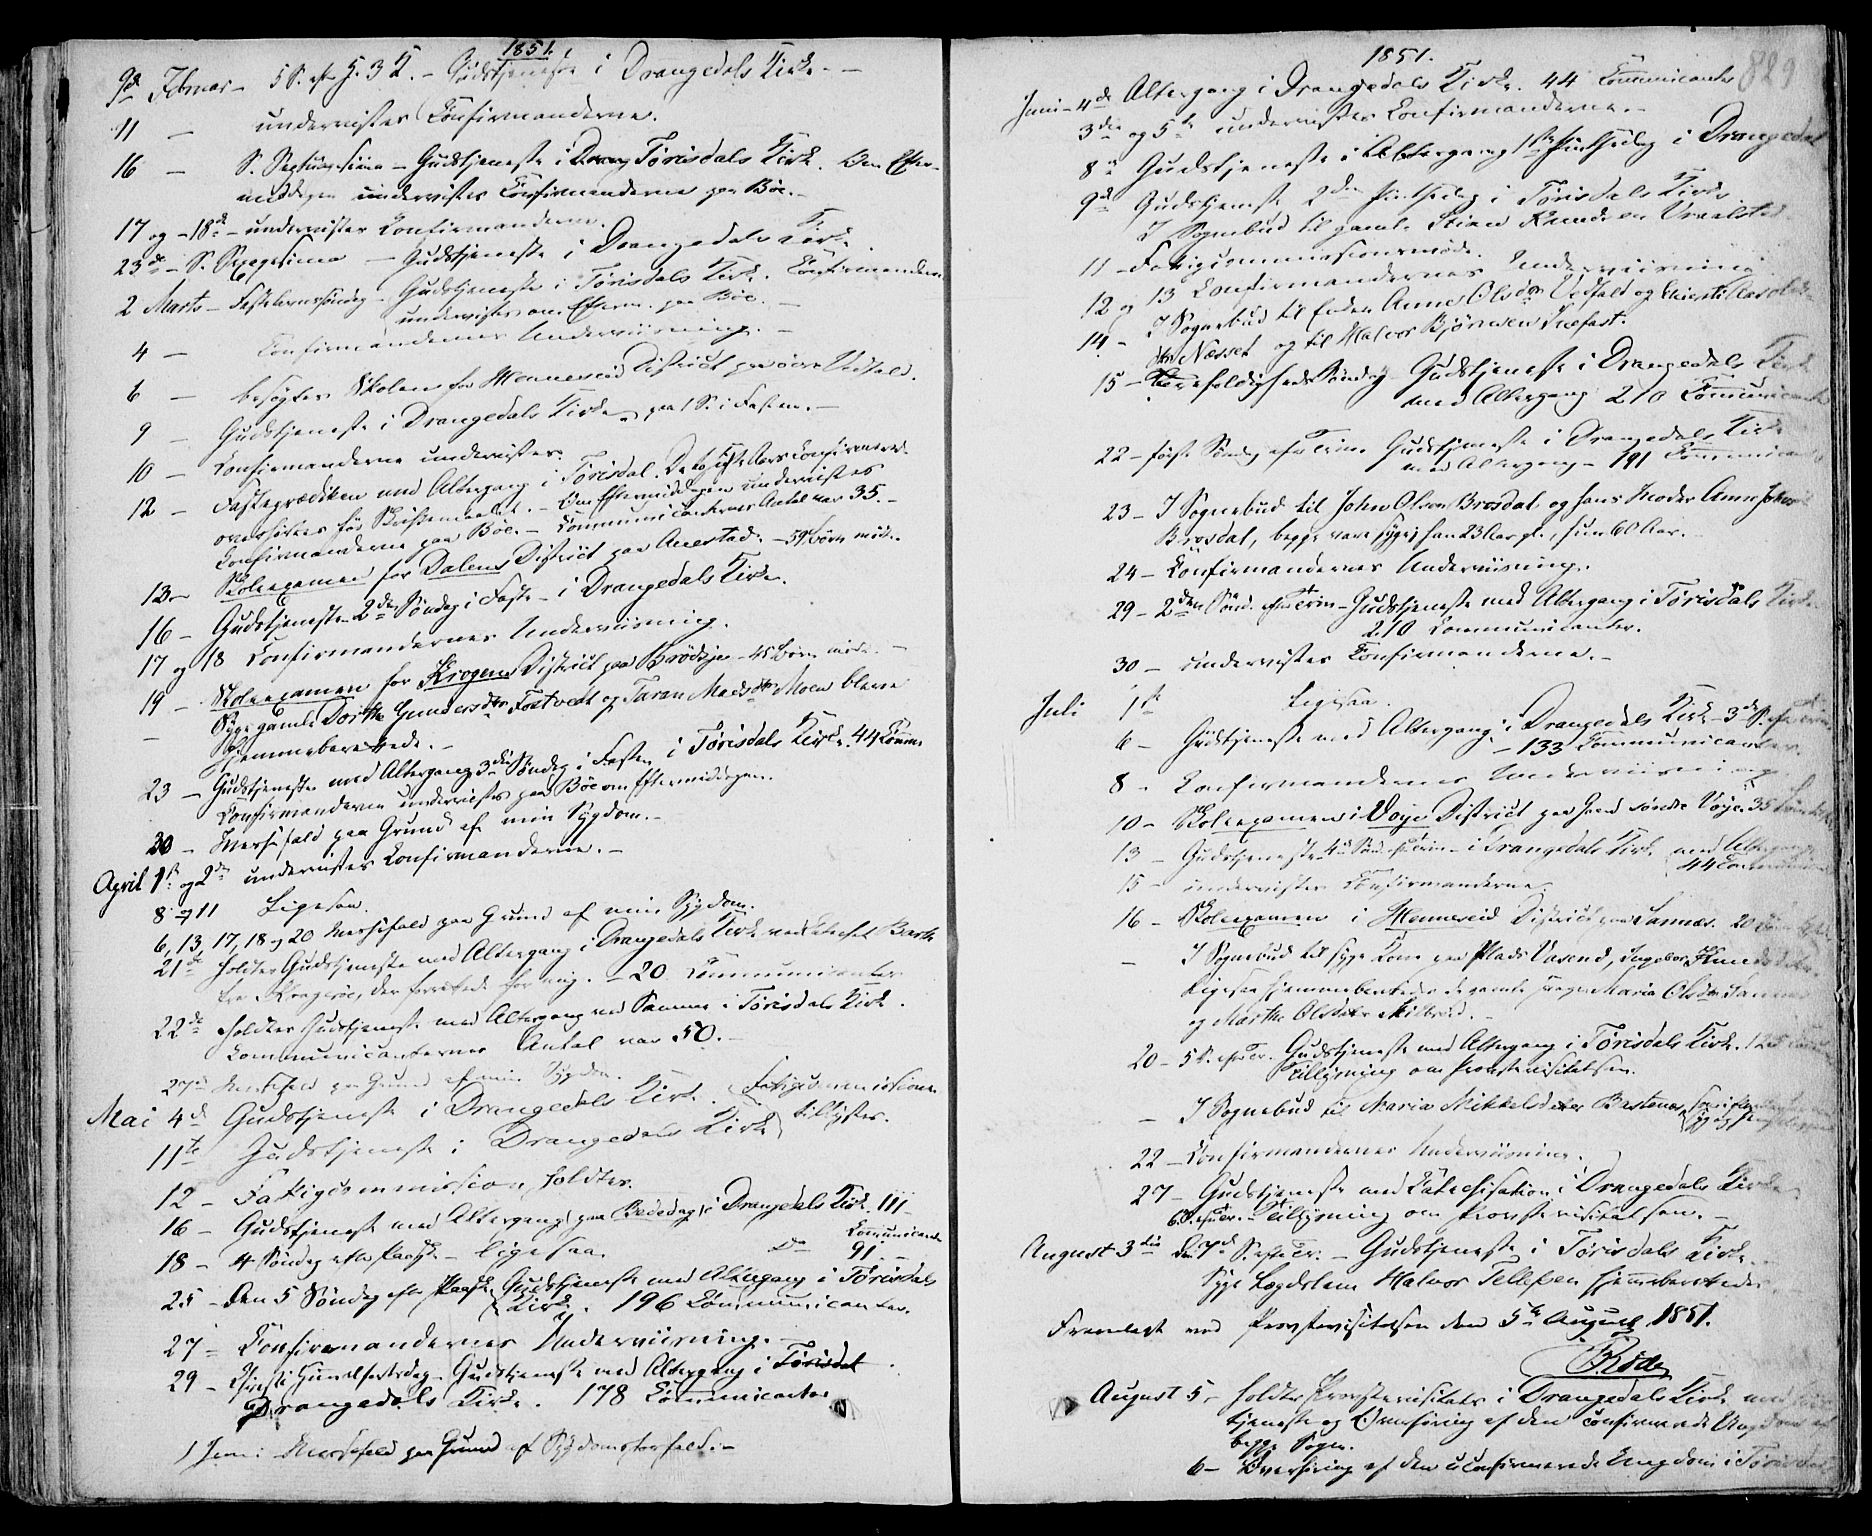 1851.
9de Februar – 5 S. efter H. 3 K. – Gudstjeneste i Drangedals Kirke. –
11 – undervistes Confirmanderne.
16 – S. Septuagesima – Gudstjeneste i Drang Tørisdals Kirke. Om Efter-
middagen undervistes Confirmanderne paa Bøe. –
17 og – 18de – undervistes Confirmanderne.
23de – S. Sexagesima – Gudstjeneste i Drangedals Kirke.
2 Marts – Fastelavnssöndag – Gudstjeneste i Törisdals Kirke. Confirmanderne
undervistes om Efterm. paa Bøe. –
4 – Confirmandernes Underviisning. –
6 – besøgtes Skolen for Henneseid District paa övre Vedfald.
9 – Gudstjeneste i Drangedals Kirke – paa 1 S. i Fasten. –
10 – Confirmanderne undervistes.
12 – Fasteprædiken med Altergang i Tørisdal. De to sidste Aars Confirmerede
overhörtes før Skriftemaalet. – Om Eftermiddagen undervistes
Confirmanderne paa Bøe. – Communicanternes Antal var 35. –
13 – Skoleexamen for Dalens District paa Anestad. – 59 Börn mödte.
16 – Gudstjeneste 2den Söndag i Faste – i Drangedals Kirke.
17 og 18 Confirmandernes Underviisning.
19 – Skoleexamen for Krogens District paa Brödsjø – 45 Börn mödte. –
– Syge gamle Dorthe Gundersdtr Fostvedt og Taran Madsdtr Moen bleve
hjemmeberettede. –
23 – Gudstjeneste med Altergang 3die Söndag i Fasten i Tørisdals Kirke. 44 Comm.
Confirmanderne undervistes paa Bøe om Eftermiddagen.
30 – Messefald paa Grund af min Sygdom. –
April 1ste og 2den undervistes Confirmanderne. –
8 og 11 Ligesaa.
6, 13, 17, 18 og 20 Messefald paa Grund af min Sygdom.
21de holdtes Gudstjeneste med Altergang i Drangedals Kirke ved Catechet Barth
fra Kragerøe, der forrettede for mig. – 20 Communicanter
22de holdtes Gudstjeneste med Altergang ved Samme i Tørisdals Kirke.
Communicanternes Antal var 50. –
27de Messefald paa Grund af min Sygdom.
Mai 4de Gudstjeneste i Drangedals Kirke. Fatigcommission
11te Gudstjeneste i Drangedals Kirke tillystes.
12 – Fatigcommission holdtes.
16 – Gudstjeneste med Altergang paa Bededag i Drangedals Kirke 111
Communicanter
18 – 4 Söndag efter Paaske – ligesaa. Do 91. –
25 – Den 5 Söndag efter Paaske Gudstjeneste med Altergang i Tørisdals
Kirke. 196 Communicanter.
27 – Confirmandernes Underviisning. –
29 – Christi Himmelfartsdag – Gudstjeneste med Altergang i Törisdal
Drangedals Kirke. 178 Communicanter
1 Juni Messefald paa Grund af Sygdomsforfald. –
1851.
Juni – 4de Altergang i Drangedals Kirke. 44 Communicanter
3die og 5te undervistes Confirmanderne. –
8de Gudstjeneste i Altergang 1ste Pintsedag i Drangedal
9de Gudstjeneste 2den Pintsedag i Tørisdals Kirke.
I Sognebud til gamle Stian Knudsen Vraalstad
11 – Fatigcommissionsmöde.
12 og 13 Confirmandernes Underviisning.
14 – I Sognebud til Enken Anne Olsdtr Vedfald og Kirsti
dtr Næsset og til Halvor Björnsen
15 – Trefoldigheds Söndag Gudstjeneste i Drangedals Kirke
med Altergang 210 Communicanter
22 – förste Söndag efter Trin. Gudstjeneste i Drangedals Kirke
med Altergang – 191 Communicanter
23 – I Sognebud til John Olsen Brosdal og hans Moder Anne
Brosdal, begge vare syge; han 23 Aar gl., hun 60 Aar. –
24 – Confirmandernes Underviisning.
29 – 2den Sönd. efter Trin – Gudstjeneste med Altergang i Tørisdals Kirke
210 Communicanter.
30 – undervistes Confirmanderne. –
Juli 1ste Ligesaa.
6 – Gudstjeneste med Altergang i Drangedals Kirke – 3de S. efter Trin
– 133 Communicanter.
8 – Confirmandernes Underviisning.
10 – Skoleexamen i Voje District paa söndre Voje. 35 Börn
13 – Gudstjeneste 4de Sönd. efter Trin – i Drangedals Kirke med Altergang
44 Communicanter
15 – undervistes Confirmanderne.
16 – Skoleexamen i Henneseid District paa Sannes. 20 Börn
– I Sognebud til syge Kone paa Plads Vasend, Ingebor
Ligesaa hjemmeberettedes de gamle syge Maria Olsdtr Sannes
og Marthe Olsdatter
20 – 5 S. efter Tr. Gudstjeneste med Altergang i Tørisdals Kirke.
Tillysning om Provstevisitatsen.
– I Sognebud til Maria Mikkelsdatter Bostenes
22 – Confirmandernes Underviisning.
27 – Gudstjeneste med Catechisation i Drangedals Kirke
6 S. efter Tr. – Tillysning om Provstevisitatsen. –
August 3die Den 7de S. efter Tr. – Gudstjeneste i Tørisdals Kirke.
Syge Lægdslem Halvor Tellefsen hjemmeberettedes.
Fremlagt ved Provstevisitatsen den 5te August 1851.
Rode
August 5 – holdtes Provstevisitats i Drangedals Kirke med
tjeneste og Overhöring af den confirmerede Ungdom af
begge Sogne.
6 – Overhöring af den uconfirmerede Ungdom i Törisdal